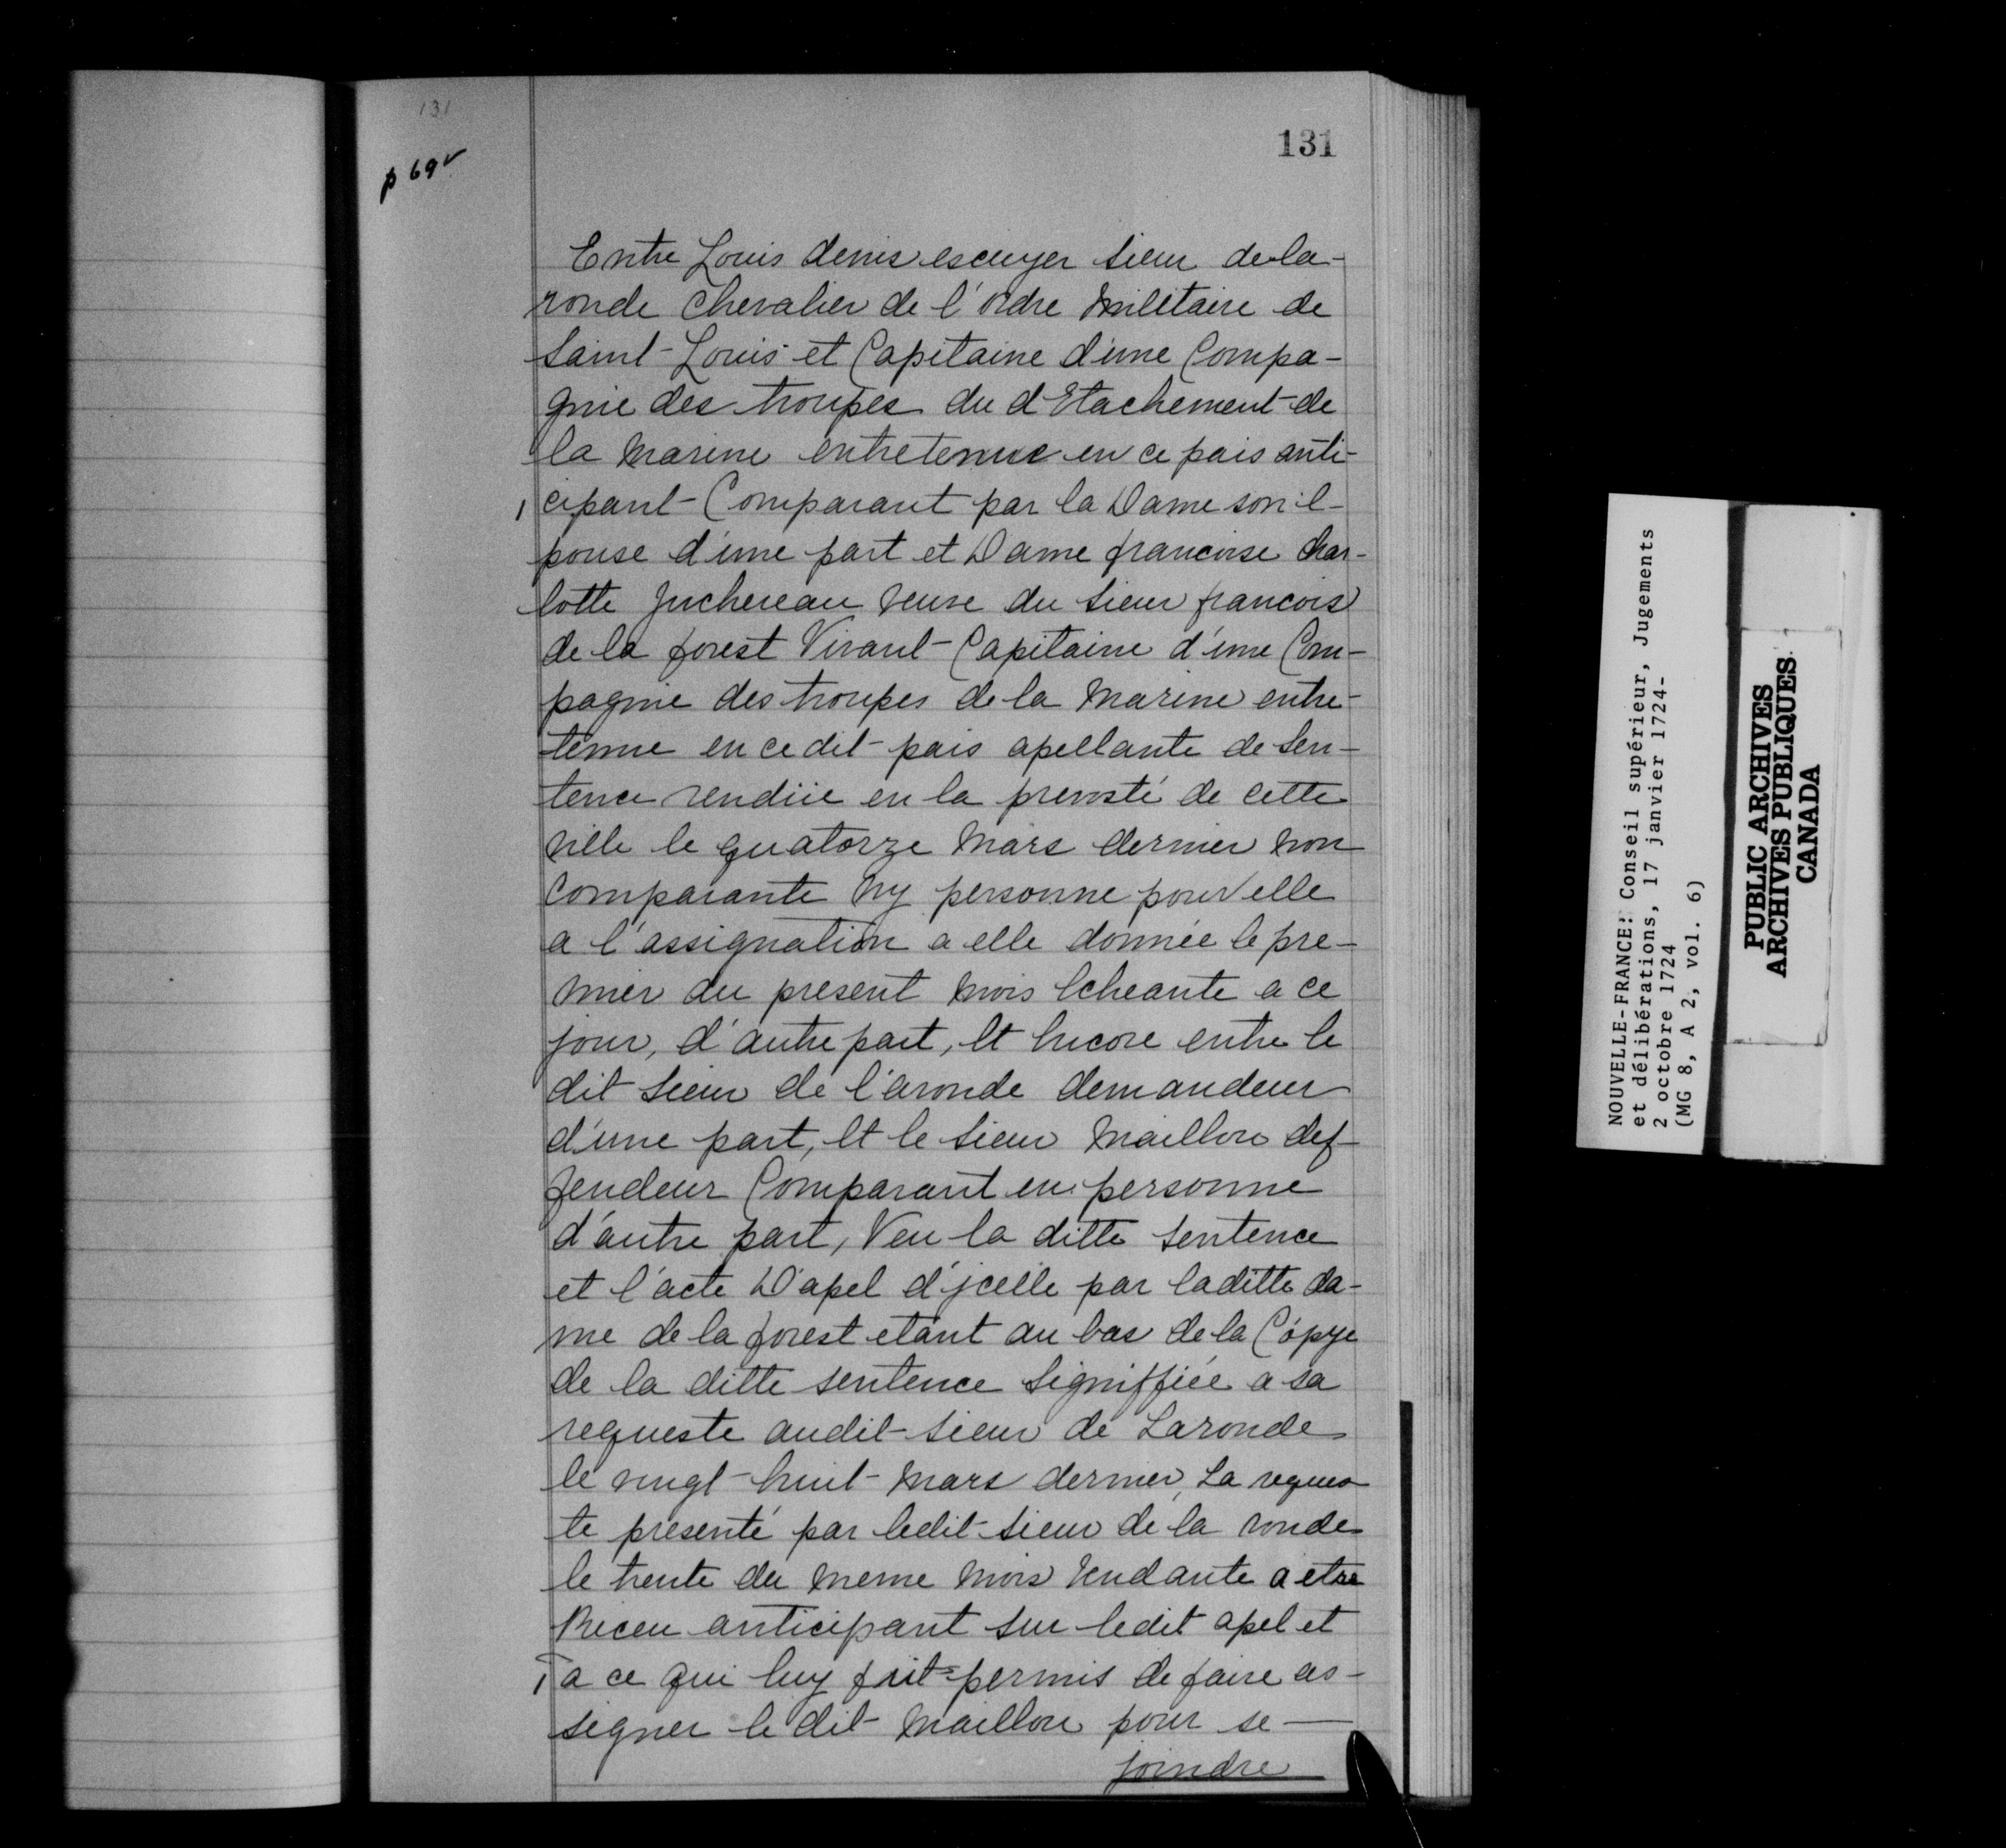 131
131
p 69v
Entre Louis denis escuyer sieur de la-
ronde Chevalier de l'ordre Militaire de
Saint-Louis et Capitaine d'une Compa-
gnie des troupes du dEtachement de
la Marine entretenue en ce pais anti-
cipant Comparant par la Dame son E-
pouse d'une part et Dame francoise Char-
lotte Juchereau Veuve du Sieur francois
de la forest Vivant Capitaine d'une Com-
pagnie des troupes de la Marine entre-
tenue en ce dit pais apellante de Sen-
tence rendüe en la prevosté de cette
Ville le quatorze Mars dernier Non
Comparante Ny personne pour elle
a l'assignation a elle donnée le pre-
mier du present Mois Echeante a ce
jour, d'autre part, Et Encore entre le
dit Sieur de l'aronde demandeur
d'une part, Et le Sieur Maillou def-
fendeur Comparant en personne
d'autre part, Veu la ditte Sentence
et l'acte D'apel d'jcelle par laditte da-
me de la forest etant au bas de la Copye
de la ditte sentence Signiffiée a sa
requeste audit Sieur de Laronde
le vingt-huit Mars dernier, La reques
te presenté par ledit Sieur de la ronde
le trente du Meme Mois tendante a etre
Receu anticipant Sur ledit apel et
a ce qui luy fut permis de faire as-
signer le dit Maillou pour se
joindre
NOUVELLE-FRANCE: Conseil supérieur, Jugements
et délibérations, 17 janvier 1724-
2 octobre 1724
(MG 8, A 2, vol. 6)
PUBLIC ARCHIVES
ARCHIVES PUBLIQUES
CANADA